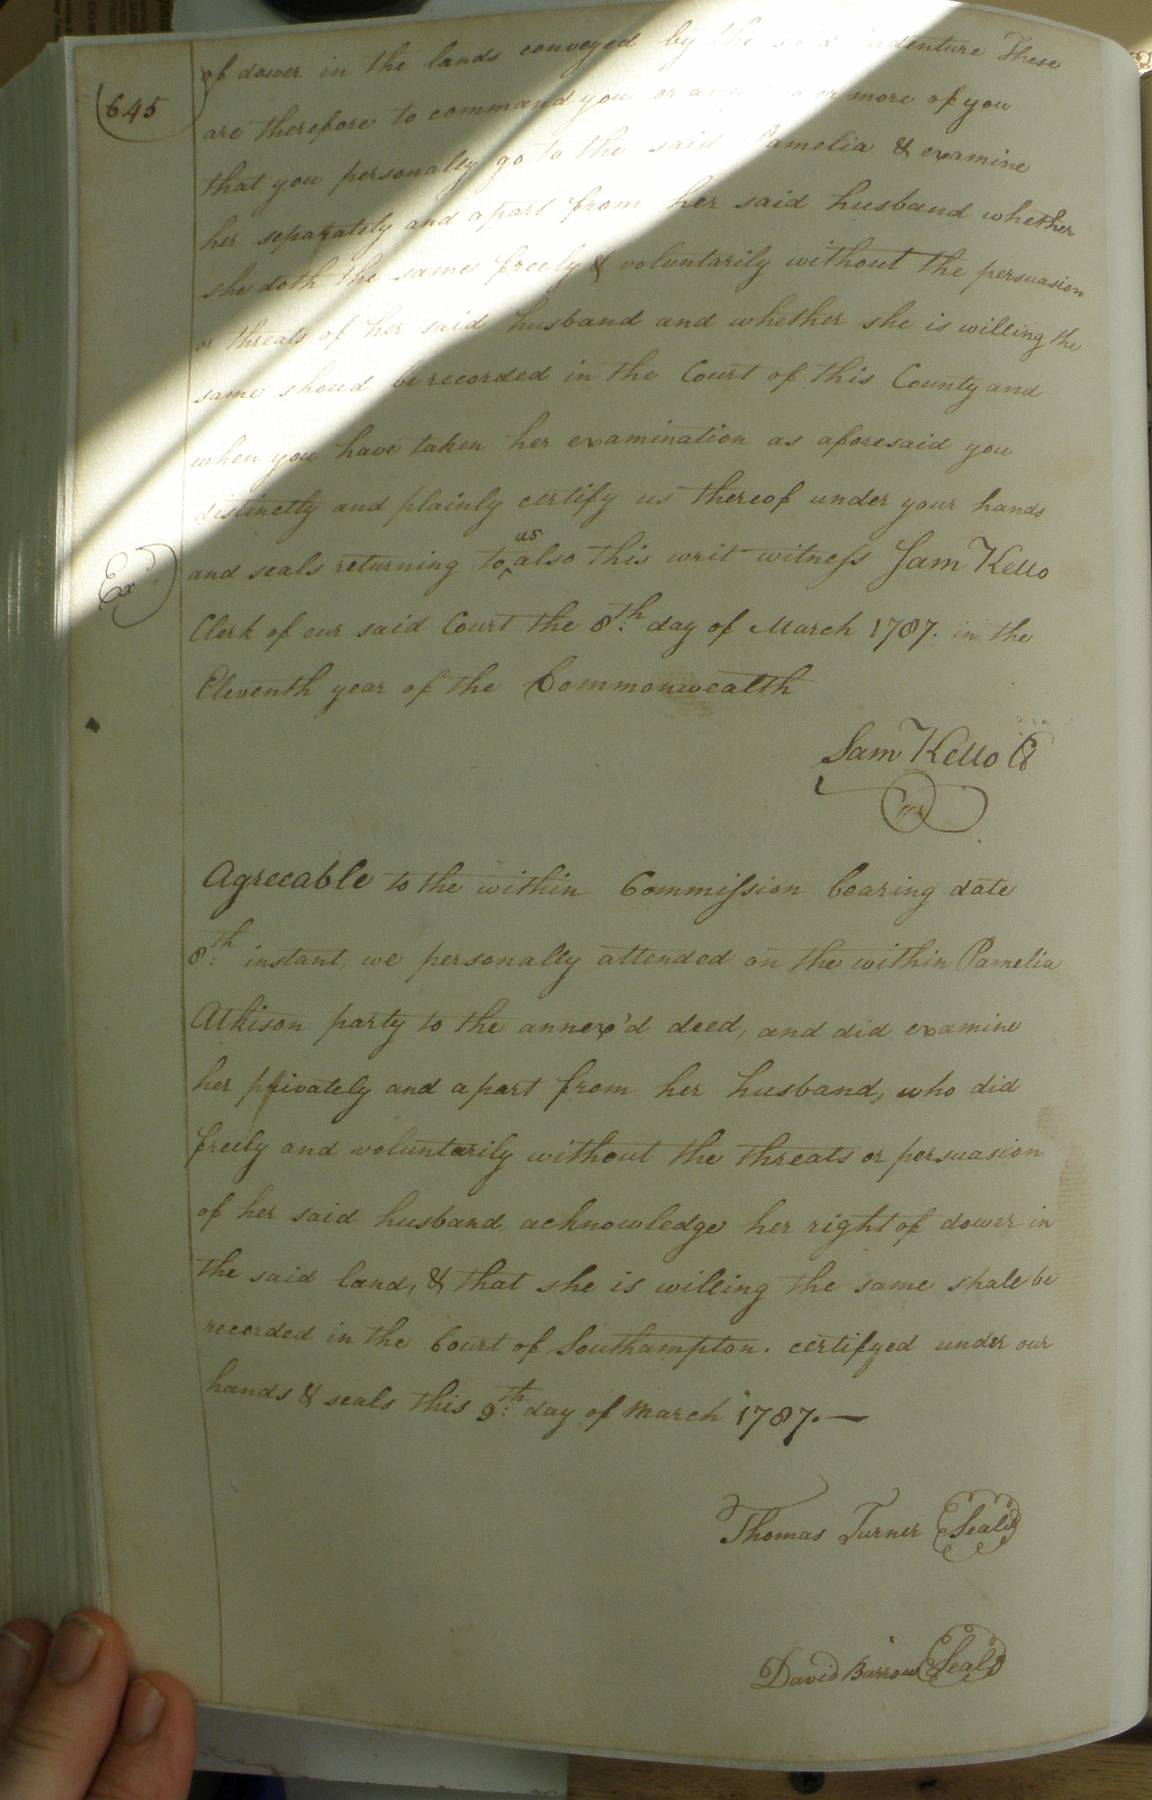 645
of dower in the lands conveyed by the said indenture These
are therefore to command you or any two or more of you
that you personally go to the said Pamelia & examine
her separately and apart from her said husband whether
she doth the same freely & voluntarily without the persuasion
or threats of her said husband and whether she is willing the
same shoud be recorded in the Court of this County and
when you have taken her examination as aforesaid you
distinctly and plainly certify us thereof under your hands
Exd
and seals returning to us also this writ witness Sam Kello
Clerk of our said Court the 8th day of March 1787. in the
Eleventh year of the Commonwealth
Sam Kello
Agreeable to the within Commission bearing date
8th instant, we personally attended on the within Pamelia
Atkison party to the annex'd deed, and did examine
her privately and apart from her husband, who did
freely and voluntarily without the threats or persuasion
of her said husband acknowledge her right of dower in
the said land, & that she is willing the same shall be
recorded in the Court of Southampton. certifyed under our
hands & seals this 9th day of March 1787.—
Thomas Turner Seal
David Barrow Seal